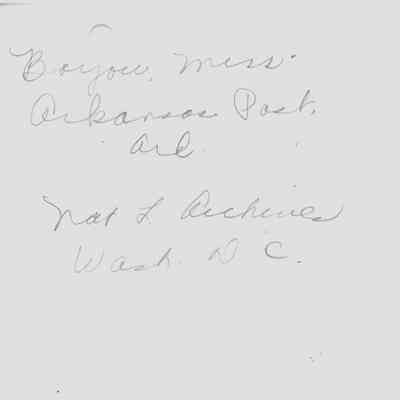 Boyou, Miss.
Arkansas Post,
Ark.
Nat L. Archives
Wash. D C.